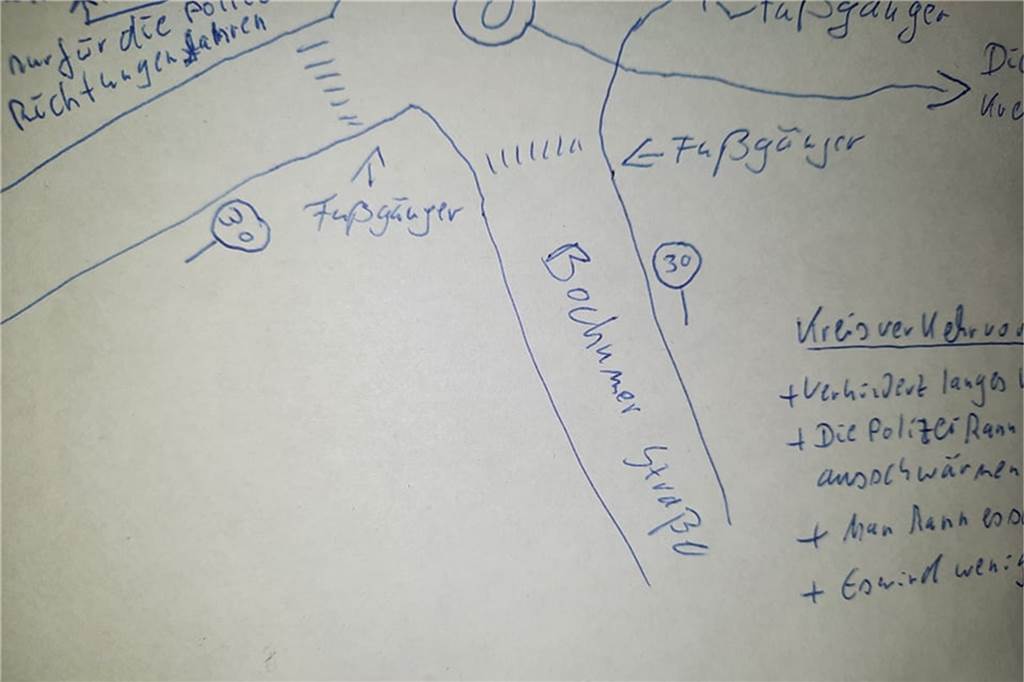 nur für die Polizei
Richtungen fahren
Fußgänger
Die
Fußgänger
Fußgänger
30
30
Bochumer Straße
Kreisverkehr vor
+ Verhindert langes
+ Die Polizei kann
ausschwärmen
+ Man kann es
+ Es wird wenig